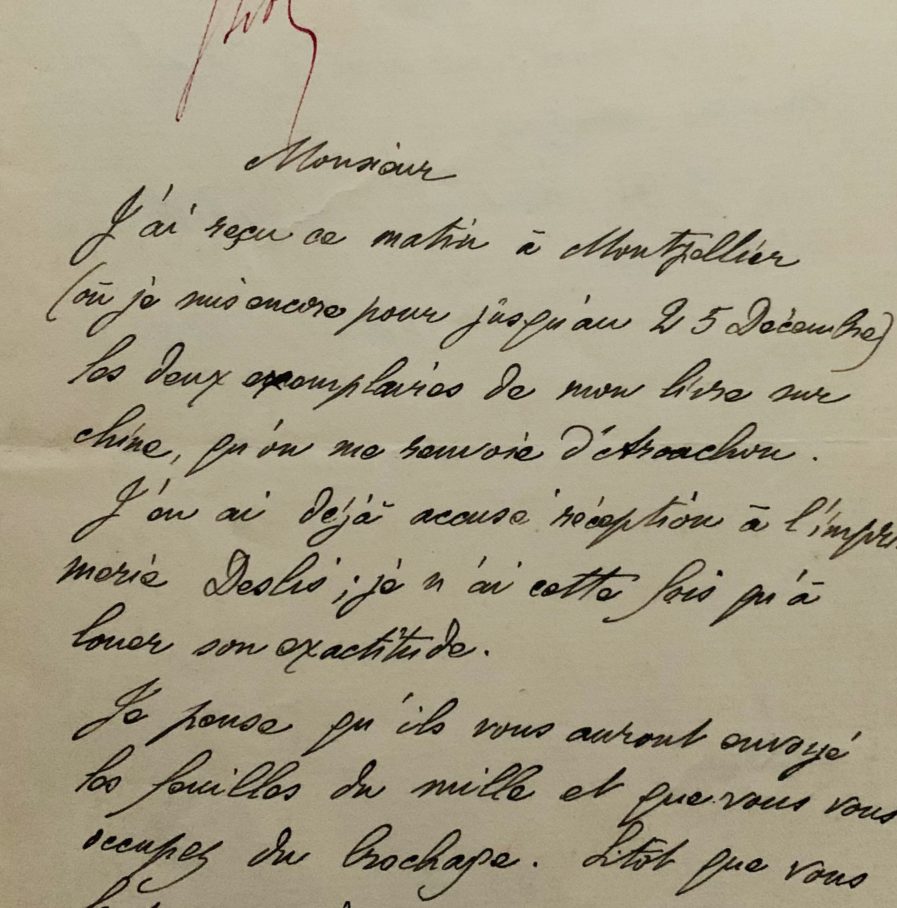 Monsieur
J'ai reçu ce matin à Montpellier
(où je suis encore pour jusqu'au 25 Décembre)
les deux exemplaires de mon livre sur
chine, qu'on me renvoie d'Arcachon.
J'en ai déjà accusé réception à l'impri
merie Deslis ; je n'ai cette fois qu'à
louer son exactitude.
Je pense qu'ils vous auront envoyé
les feuilles du mille et que vous vous
occupez du brochage. Sitôt que vous